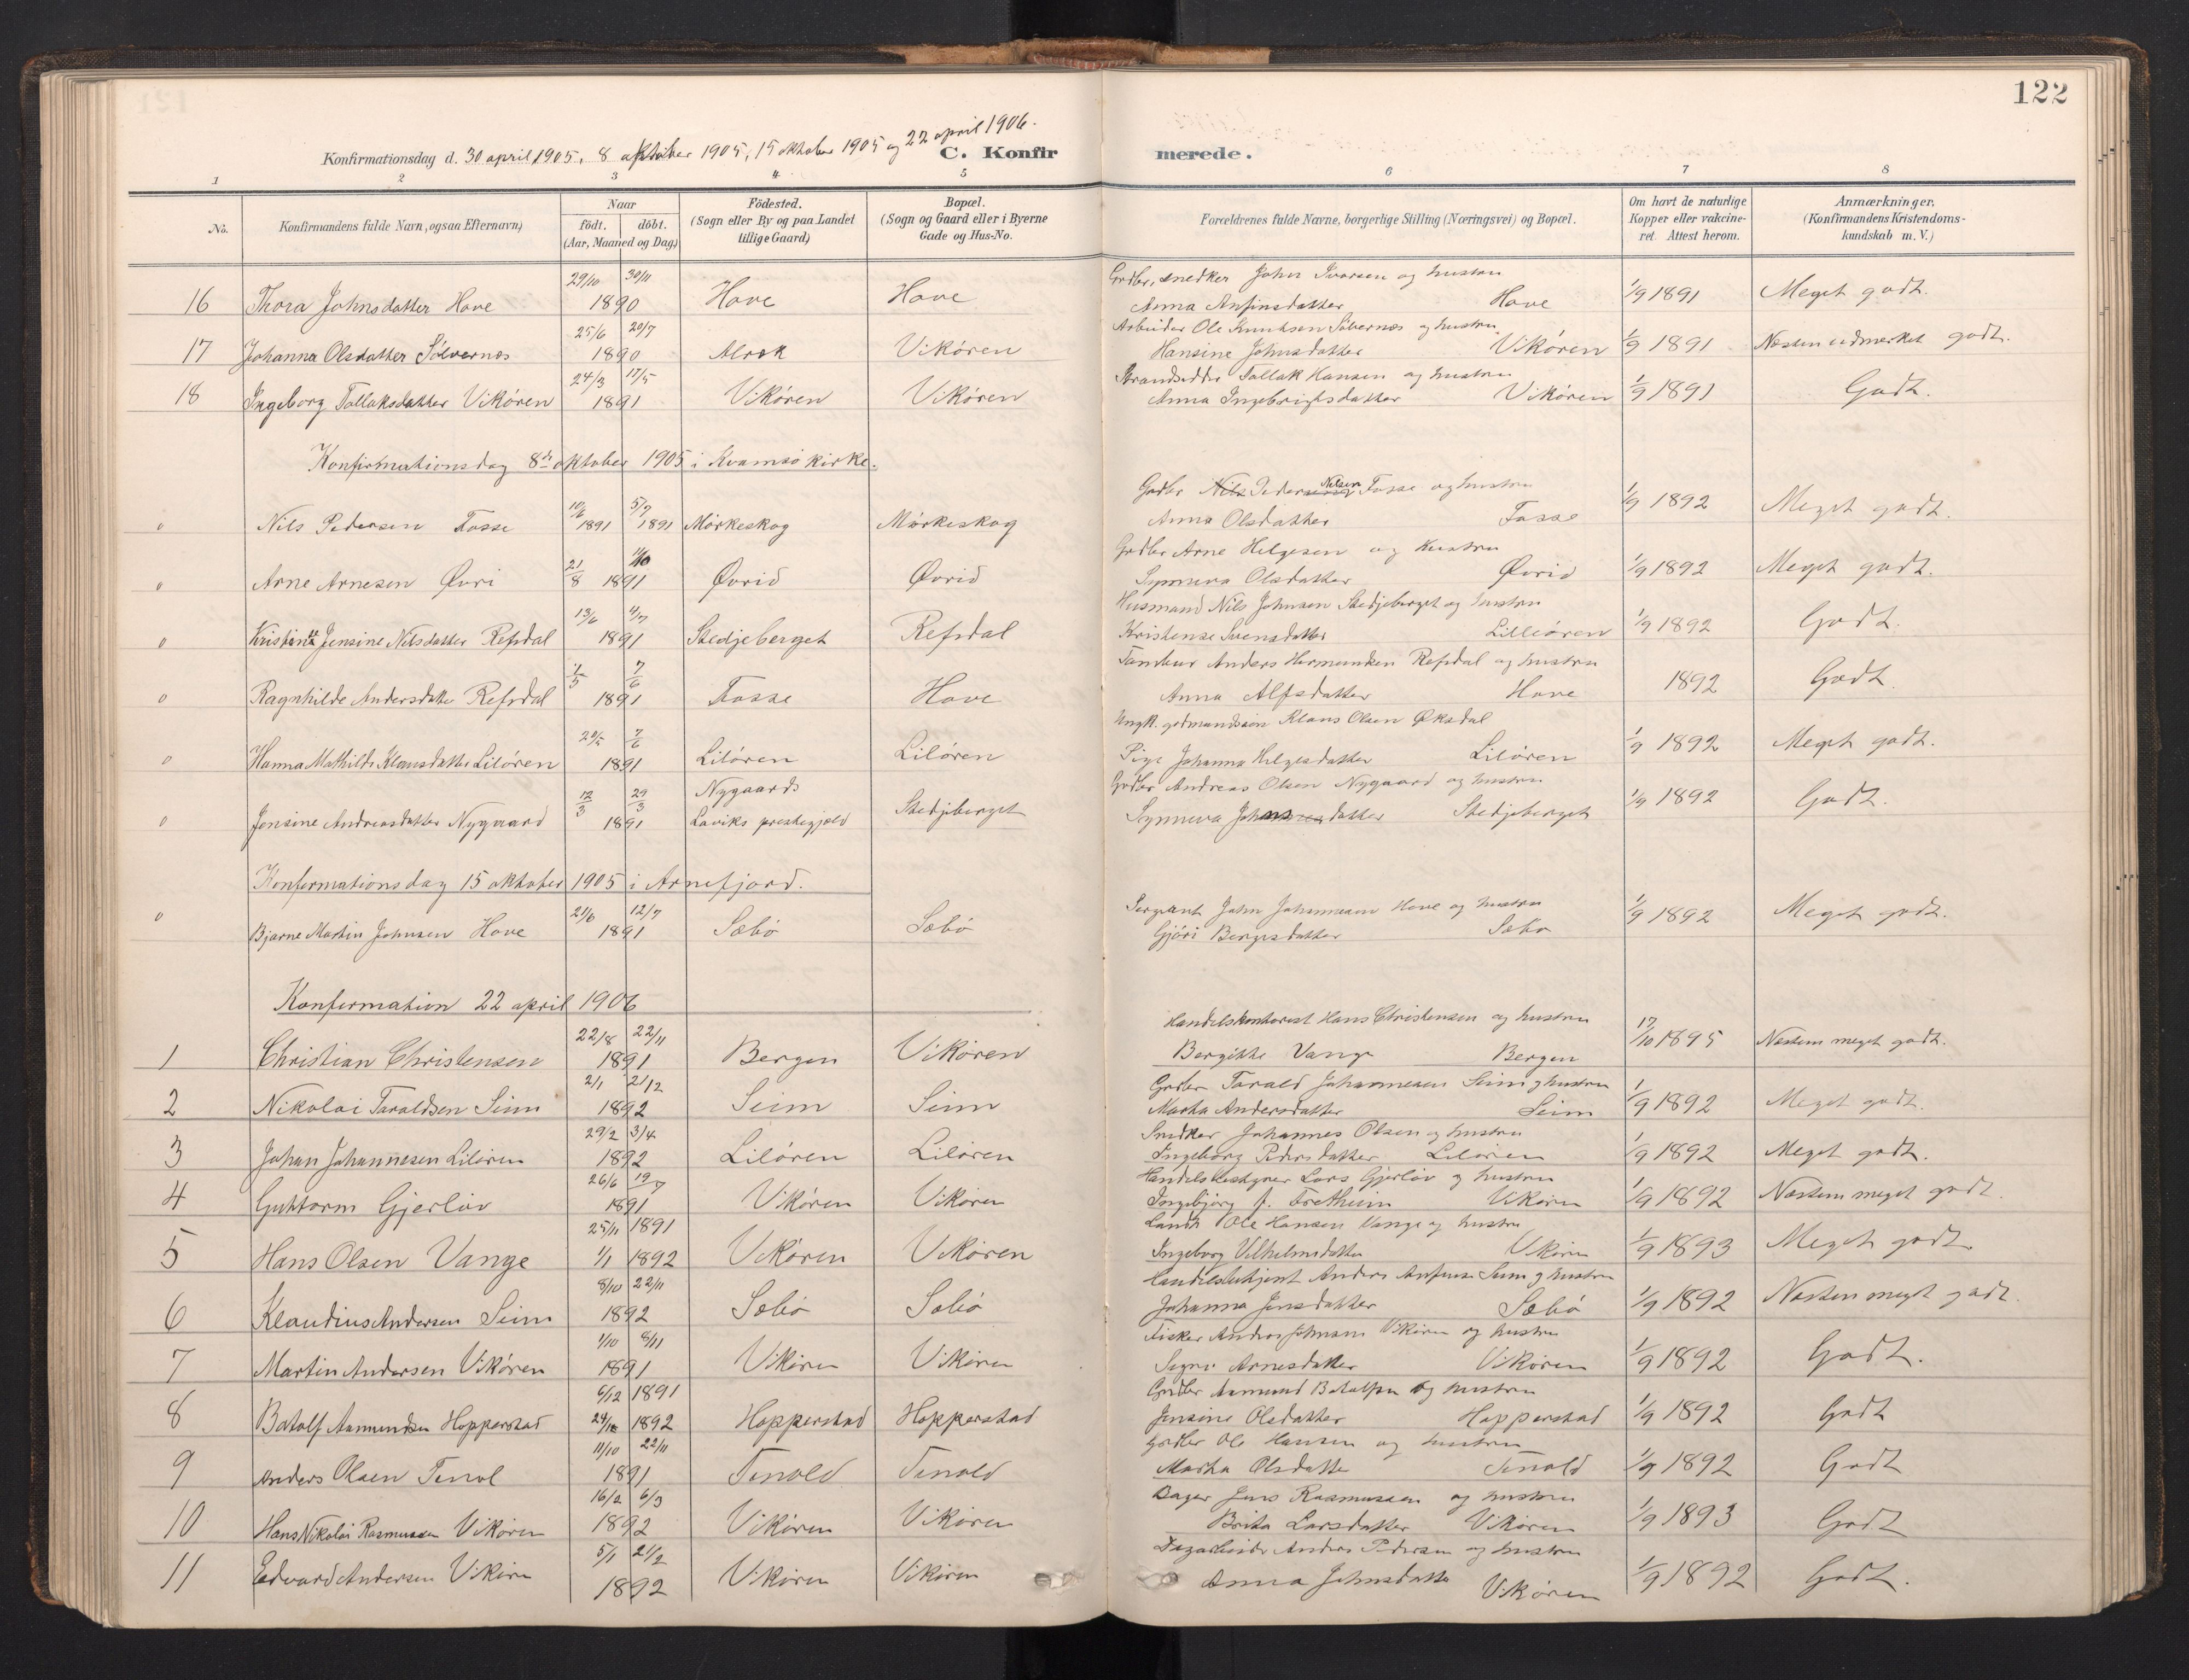 122
Konfirmationsdag d. 30 april 1905, 8 oktober 1905, 15 oktober 1905 og 22 april 1906.
C. Konfirmerede.
1 2 3 4 5 6 7 8
No. Konfirmandens fulde Navn, ogsaa Efternavn) Naar født. døbt. (Aar, Maaned og Dag) Fødested. (Sogn eller By og paa Landet tillige Gaard) Bopæl. (Sogn og Gaard eller i Byerne Gade og Hus-No. Forældrenes fulde Navne, borgerlige Stilling (Næringsvei) og Bopæl. Om havt de naturlige Kopper eller vakcineret. Attest herom. Anmærkninger. (Konfirmandens Kristendomskundskab m. V.)
29/10 30/11 Grdbr, snedker John Ivarsen og hustru
16 Thora Johnsdatter Hove 1890 Hove Hove Anna Anfinsdatter Hove 1/9 1891 Meget godt.
25/6 20/7 Arbeider Ole Knutsen Sølvernes og hustru
17 Johanna Olsdatter Sølvernes 1890 Vikøren Hansine Johnsdatter Vikøren 1/9 1891 Næsten udmerket godt.
24/3 17/5 Strandsidder Tollak Hansen og hustru
18 Ingeborg Tollaksdatter Vikøren 1891 Vikøren Vikøren Anna Ingebrigtsdatter Vikøren 1/9 1891 Godt.
Konfirmationsdag 8de oktober 1905 i Kvamsø kirke.
Grdbr Nils Peder Nilsen Fosse og hustru
0 Nils Pedersen Fosse 10/6 1891 5/7 1891 Mørkeskog Mørkeskog Anna Olsdatter Fosse 1/9 1892 Meget godt.
Grdbr Arne Helgesen og hustru
0 Arne Arnesen Øvri 21/8 1891 Øvrid Øvrid Synneva Olsdatter Øvrid 1/9 1892 Meget godt.
13/6 4/7 Husmand Nils Johnsen Stedjeberget og hustru
0 Jensine Nilsdatter Refsdal 1891 Stedjeberget Refsdal Kristense Svensdatter Lilleøren 1/9 1892 Godt.
1/5 7/6 Tambur Anders Hermundsen Refsdal og hustru
0 Ragnhilde Andersdatter Refsdal 1891 Fosse Hove Anna Alfsdatter Hove 1892 Godt.
7/6 Ungk. grdmandssøn Klaus Olsen Øksdal
0 Hanna Mathilde Klausdatter Liløren 1891 Liløren Liløren Pige Johanna Helgesdatter Liløren 1/9 1892 Meget godt.
12/3 29/3 Nygaards Grdbr Andreas Olsen Nygaard og hustru
0 Jensine Andreasdatter Nygaard 1891 Laviks prestegjeld Stedjeberget Synneva Johansdatter Stedjeberget 1/9 1892 Godt.
Konfermationsdag 15 oktober 1905 i Arnefjord.
21/6 12/7 Sergeant John Johannesen Hove og hustru
0 Bjarne Martin Johnsen Hove 1891 Sæbø Sæbø Gjøri Bergesdatter Sæbø 1/9 1892 Meget godt.
Konfermation 22 april 1906
22/8 22/11 Handelskontorist Hans Christensen og hustru
1 Christian Christensen 1891 Bergen Vikøren Bergitte Vange Bergen 17/10 1895 Næsten meget godt.
2/1 21/12 Grdbr Tarald Johannesen Seim og hustru
2 Nikolai Taraldsen Seim 1892 Seim Seim Martha Andersdatter Seim 1/9 1892 Meget godt.
29/2 3/4 Snedker Johannes Olsen og hustru
3 Johan Johannesen Liløren 1892 Liløren Liløren Ingeborg Pedersdatter Liløren 1/9 1892 Meget godt.
26/6 19/7 Handelsbestyrer Lars Gjerløv og hustru
4 Guttorm Gjerløv 1891 Vikøren Vikøren Ingebjørg f. Fretheim Vikøren 1/9 1892 Næsten meget godt.
25/11 1891 Ole Hansen Vange og hustru
5 Hans Olsen Vange 1/1 1892 Vikøren Vikøren Ingeborg Vilhelmsdatter Vikøren 1/9 1893 Meget godt
8/10 22/11 Handelsbetjent Anders Anfinsen Seim og hustru
6 Klaudius Andersen Seim 1892 Sæbø Sæbø Johanna Jensdatter Sæbø 1/9 1892 Næsten meget godt.
1/10 8/11 Fisker Anders Johnsen Vikøren og hustru
7 Martin Andersen Vikøren 1891 Vikøren Vikøren Arnesdatter Vikøren 1/9 1892 Godt.
6/12 1891 Grdbr Aamund Botolfsen og hustru
8 Botolf Aamundsen Hopperstad 1892 Hopperstad Hopperstad Jensine Olsdatter Hopperstad 1/9 1892 Godt
11/10 22/11 Grdbr Ole Hansen og hustru
9 Anders Olsen Tenol 1891 Tenold Tenold Martha Olsdatter Tenold 1/9 1892 Godt
16/2 6/3 Bager Jens Rasmussen og hustru
10 Hans Nikolai Rasmussen Vikøren 1892 Vikøren Vikøren Brita Larsdatter Vikøren 1/9 1893 Godt
5/1 21/2 Dagarbeider Anders Pedersen og hustru
11 Edvard Andersen Vikøren 1892 Vikøren Vikøren Anna Johnsdatter Vikøren 1/9 1892 Godt.